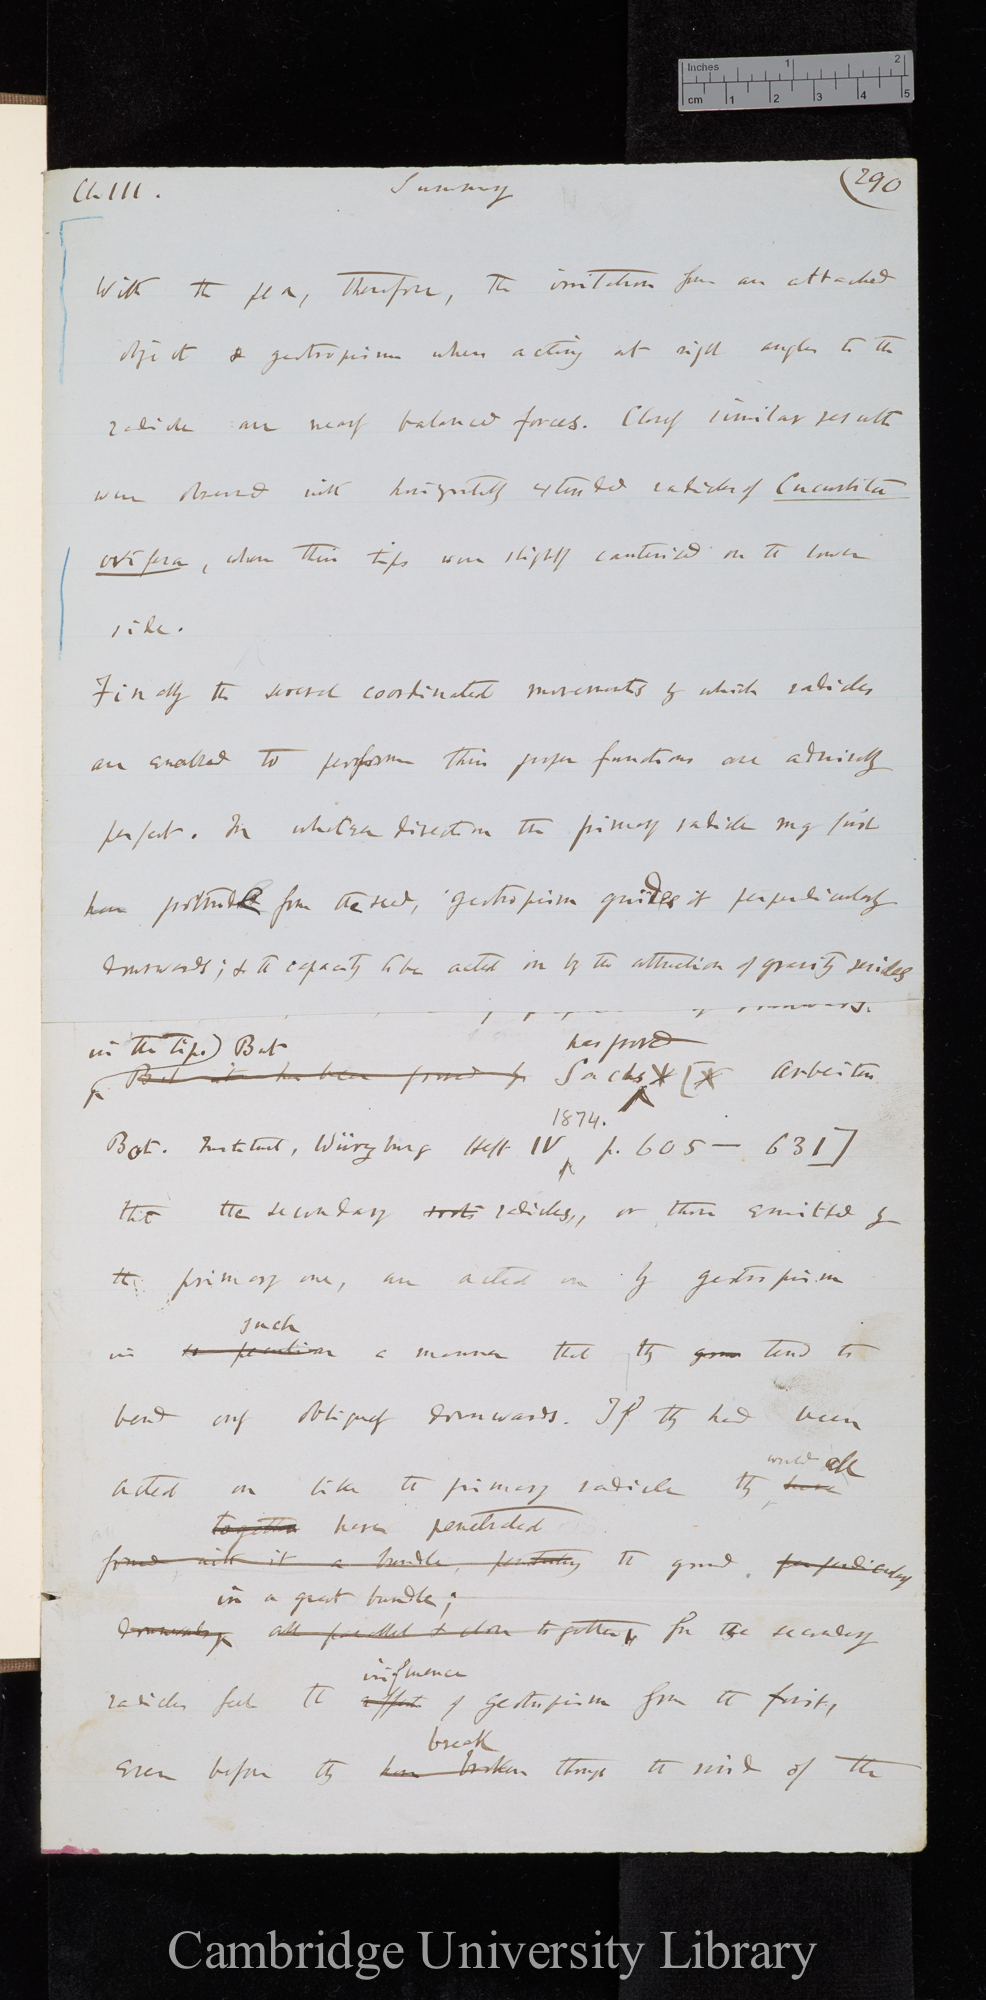 Inches 1 2
cm 1 2 3 4 5
Ch III. Summary (290
With the pea, therefore, the irritation from an attached
object & geotropism when acting at right angles to the
radicle are nearly balanced forces. Closely similar results
were observed with horizontally extended radicles of Cucurbita
ovifera, when their tips were slightly cauterised on the lower
side.
Finally the several coordinated movements by which radicles
are enabled to perform their proper functions are admirably
perfect. In whatever direction the primary radicle may first
have protruded from the seed, geotropism guides it perpendicularly
downwards; & the capacity to be acted on by the attraction of gravity resides
in the tip.) But has proved
But it has been proved by Sachs * [* Arbeiten
1874.
Bot. Institut, Würzburg Heft IV p. 605 — 631]
that the secondary roots radicles, or those emitted by
the primary one, are acted on by geotropism
such
in so peculiar a manner that they grow tend to
bend only obliquely downwards. If they had been
would all
acted on like the primary radicle they have
together have penetrated
formed with it a bundle, penetrating the ground. perpendicularly
in a great bundle;
downwards, all parallel & close together, for the secondary
influence
radicles feel the effect of geotropism from the first,
break
even before they have broken through the rind of the
Cambridge University Library